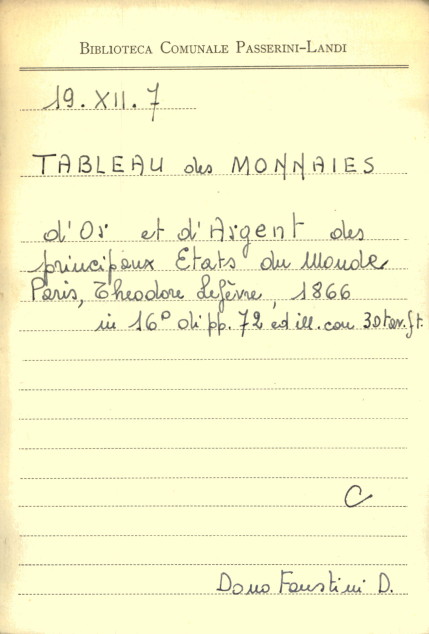 BIBLIOTECA COMUNALE PASSERINI-LANDI
19.XII.7
TABLEAU des MONNAIES
d'Or et d'Argent des
principaux Etats du Monde
Paris, Theodore Lefèvre, 1866
in 16° di pp. 72 ed ill. con 30 tav. f.t.
C
Dono Faustini D.